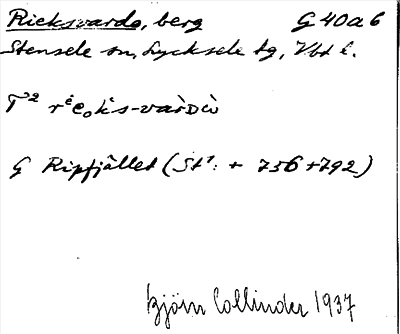 Rieksvardo, berg G 40 a 6
Stensele sn, Lycksele lg, Vbt l.
T² rieₒkˈs-varòᴅù
G Ripfjället (St¹: + 756+792)
Björn Collinder 1937